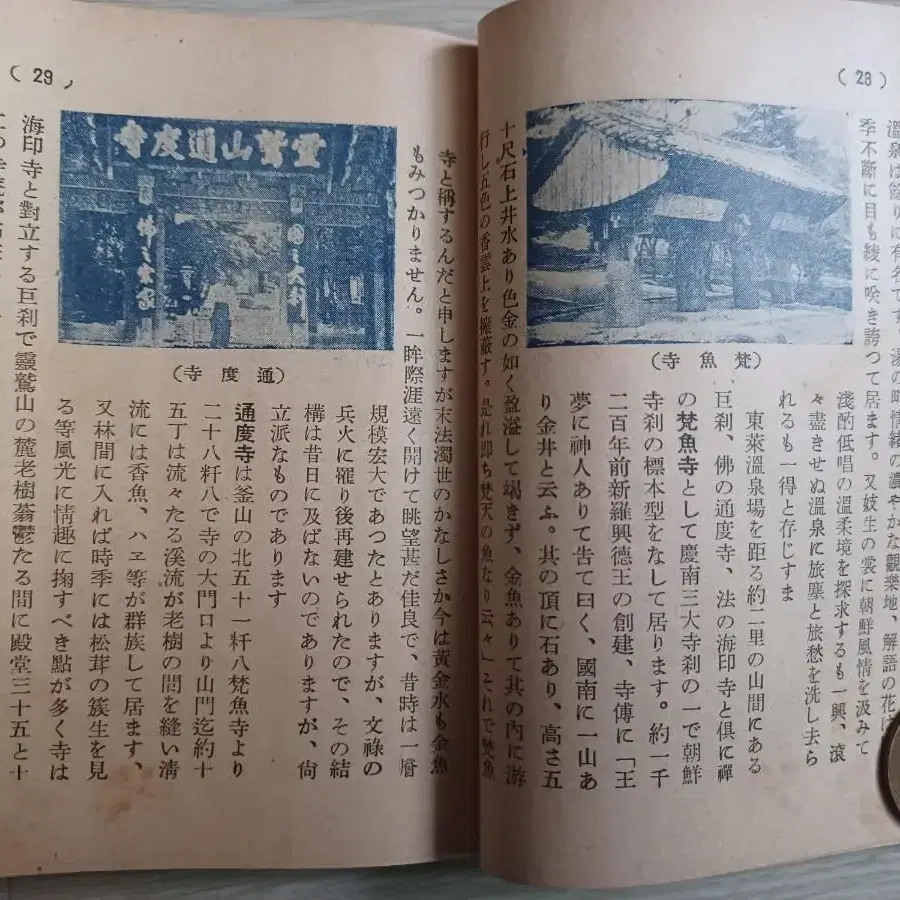 (28)
溫泉は餘りに有名です。湯の町情緒の濃やかな觀樂地、解語の花は
季不斷に目も綾に咲き誇つて居ます。又妓生の裳に朝鮮風情を汲みて
淺酌低唱の溫柔境を探求するも一興、滾
々盡きせぬ溫泉に旅塵と旅愁を洗し去ら
れるも一得と存じすま
東萊溫泉場を距る約二里の山間にある
巨刹、佛の通度寺、法の海印寺と俱に禪
の梵魚寺として慶南三大寺刹の一で朝鮮
寺刹の標本型をなして居ります。約一千
二百年前新羅興德王の創建、寺傳に「王
夢に神人ありて吿て曰く、國南に一山あ
り金井と云ふ。其の頂に石あり、高さ五
(寺魚梵)
十尺石上井水あり色金の如く盈溢して竭きず、金魚ありて其の內に游
行し五色の香雲上を擁蔽す。是れ卽ち梵天の魚なり云々」それで梵魚
(29)
寺と稱するんだと申しますが末法濁世のかなしさか今は黃金水も金魚
もみつかりません。一眸際涯遠く開けて眺望甚だ佳良で、昔時は一層
規模宏大であつたとありますが、文祿の
兵火に罹り後再建せられたので、その結
構は昔日に及ばないのでありますが、尙
立派なものであります
通度寺は釜山の北五十一粁八梵魚寺より
二十八粁八で寺の大門口より山門迄約十
五丁は流々たる溪流が老樹の間を縫い淸
流には香魚、ハヱ等が群族して居ます、
又林間に入れば時季には松茸の簇生を見
る等風光に情趣に掬すべき點が多く寺は
寺度通山鷲靈
國之大刹
佛之宗家
(寺度通)
海印寺と對立する巨刹で靈鷲山の麓老樹蓊鬱たる間に殿堂三十五と十